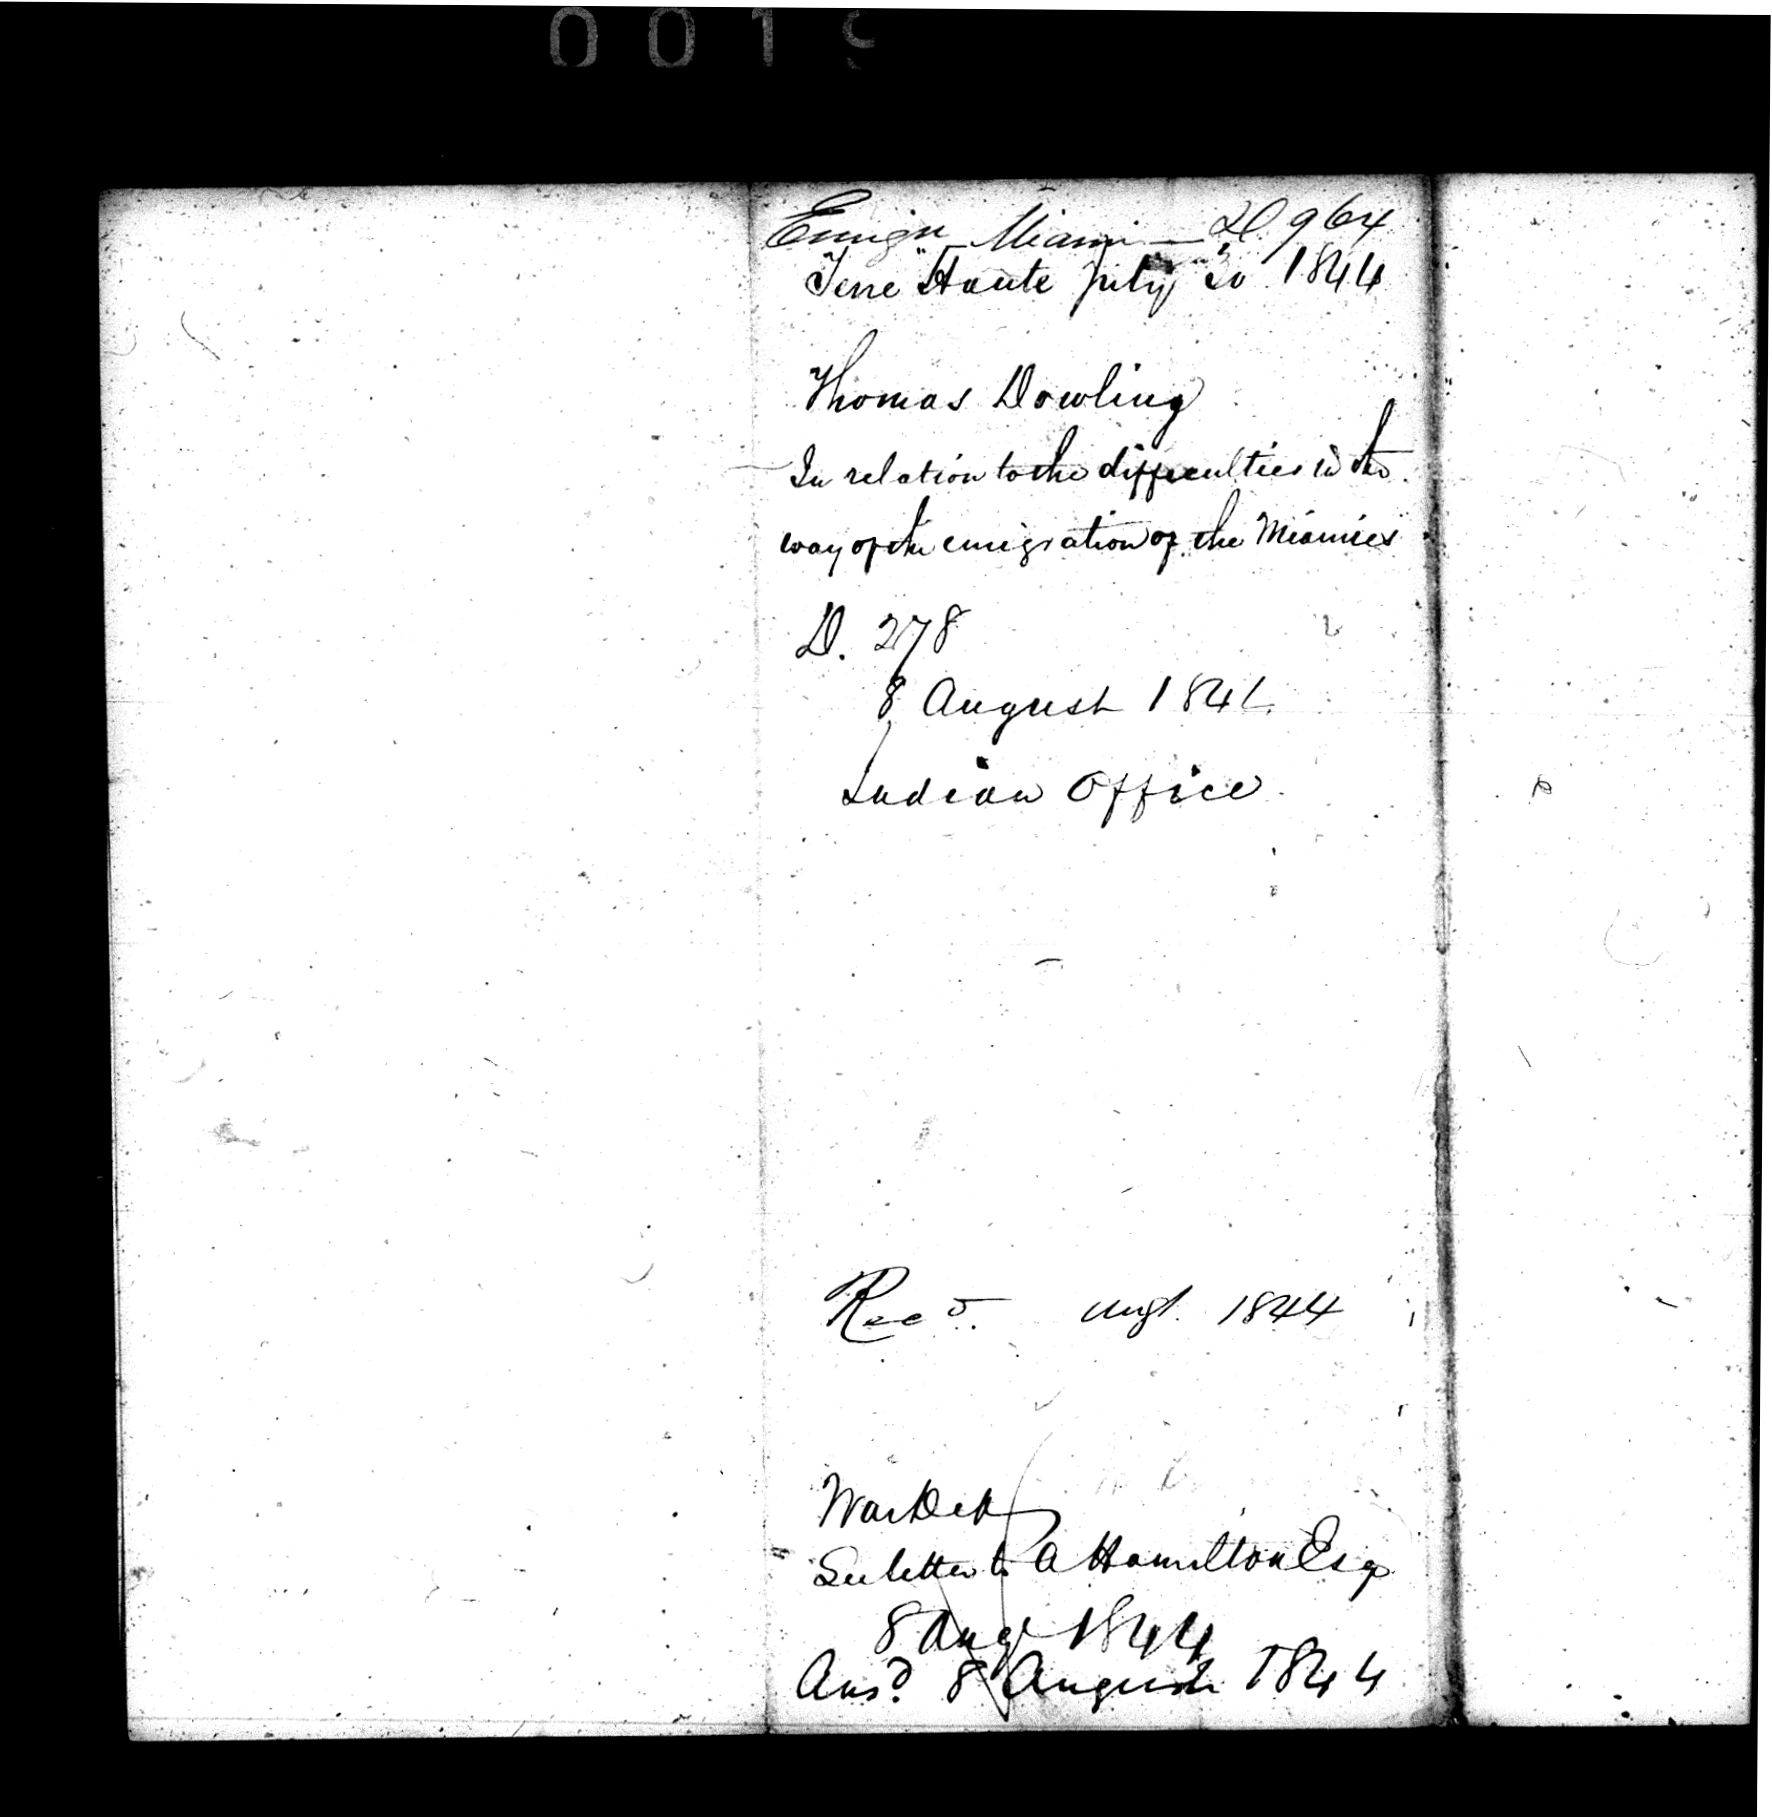 001
Emign Miami — D 964
Terre Haute July 30 1844
Thomas Dowling
In relation to the difficulties in the
way of the emigration of the Miamies
D. 278
8 August 184
Indian Office
Recd. Augt. 1844
War Dept
See letter to A Hamilton Esq
8 Augt 1844
Ansd. 8 August 1844